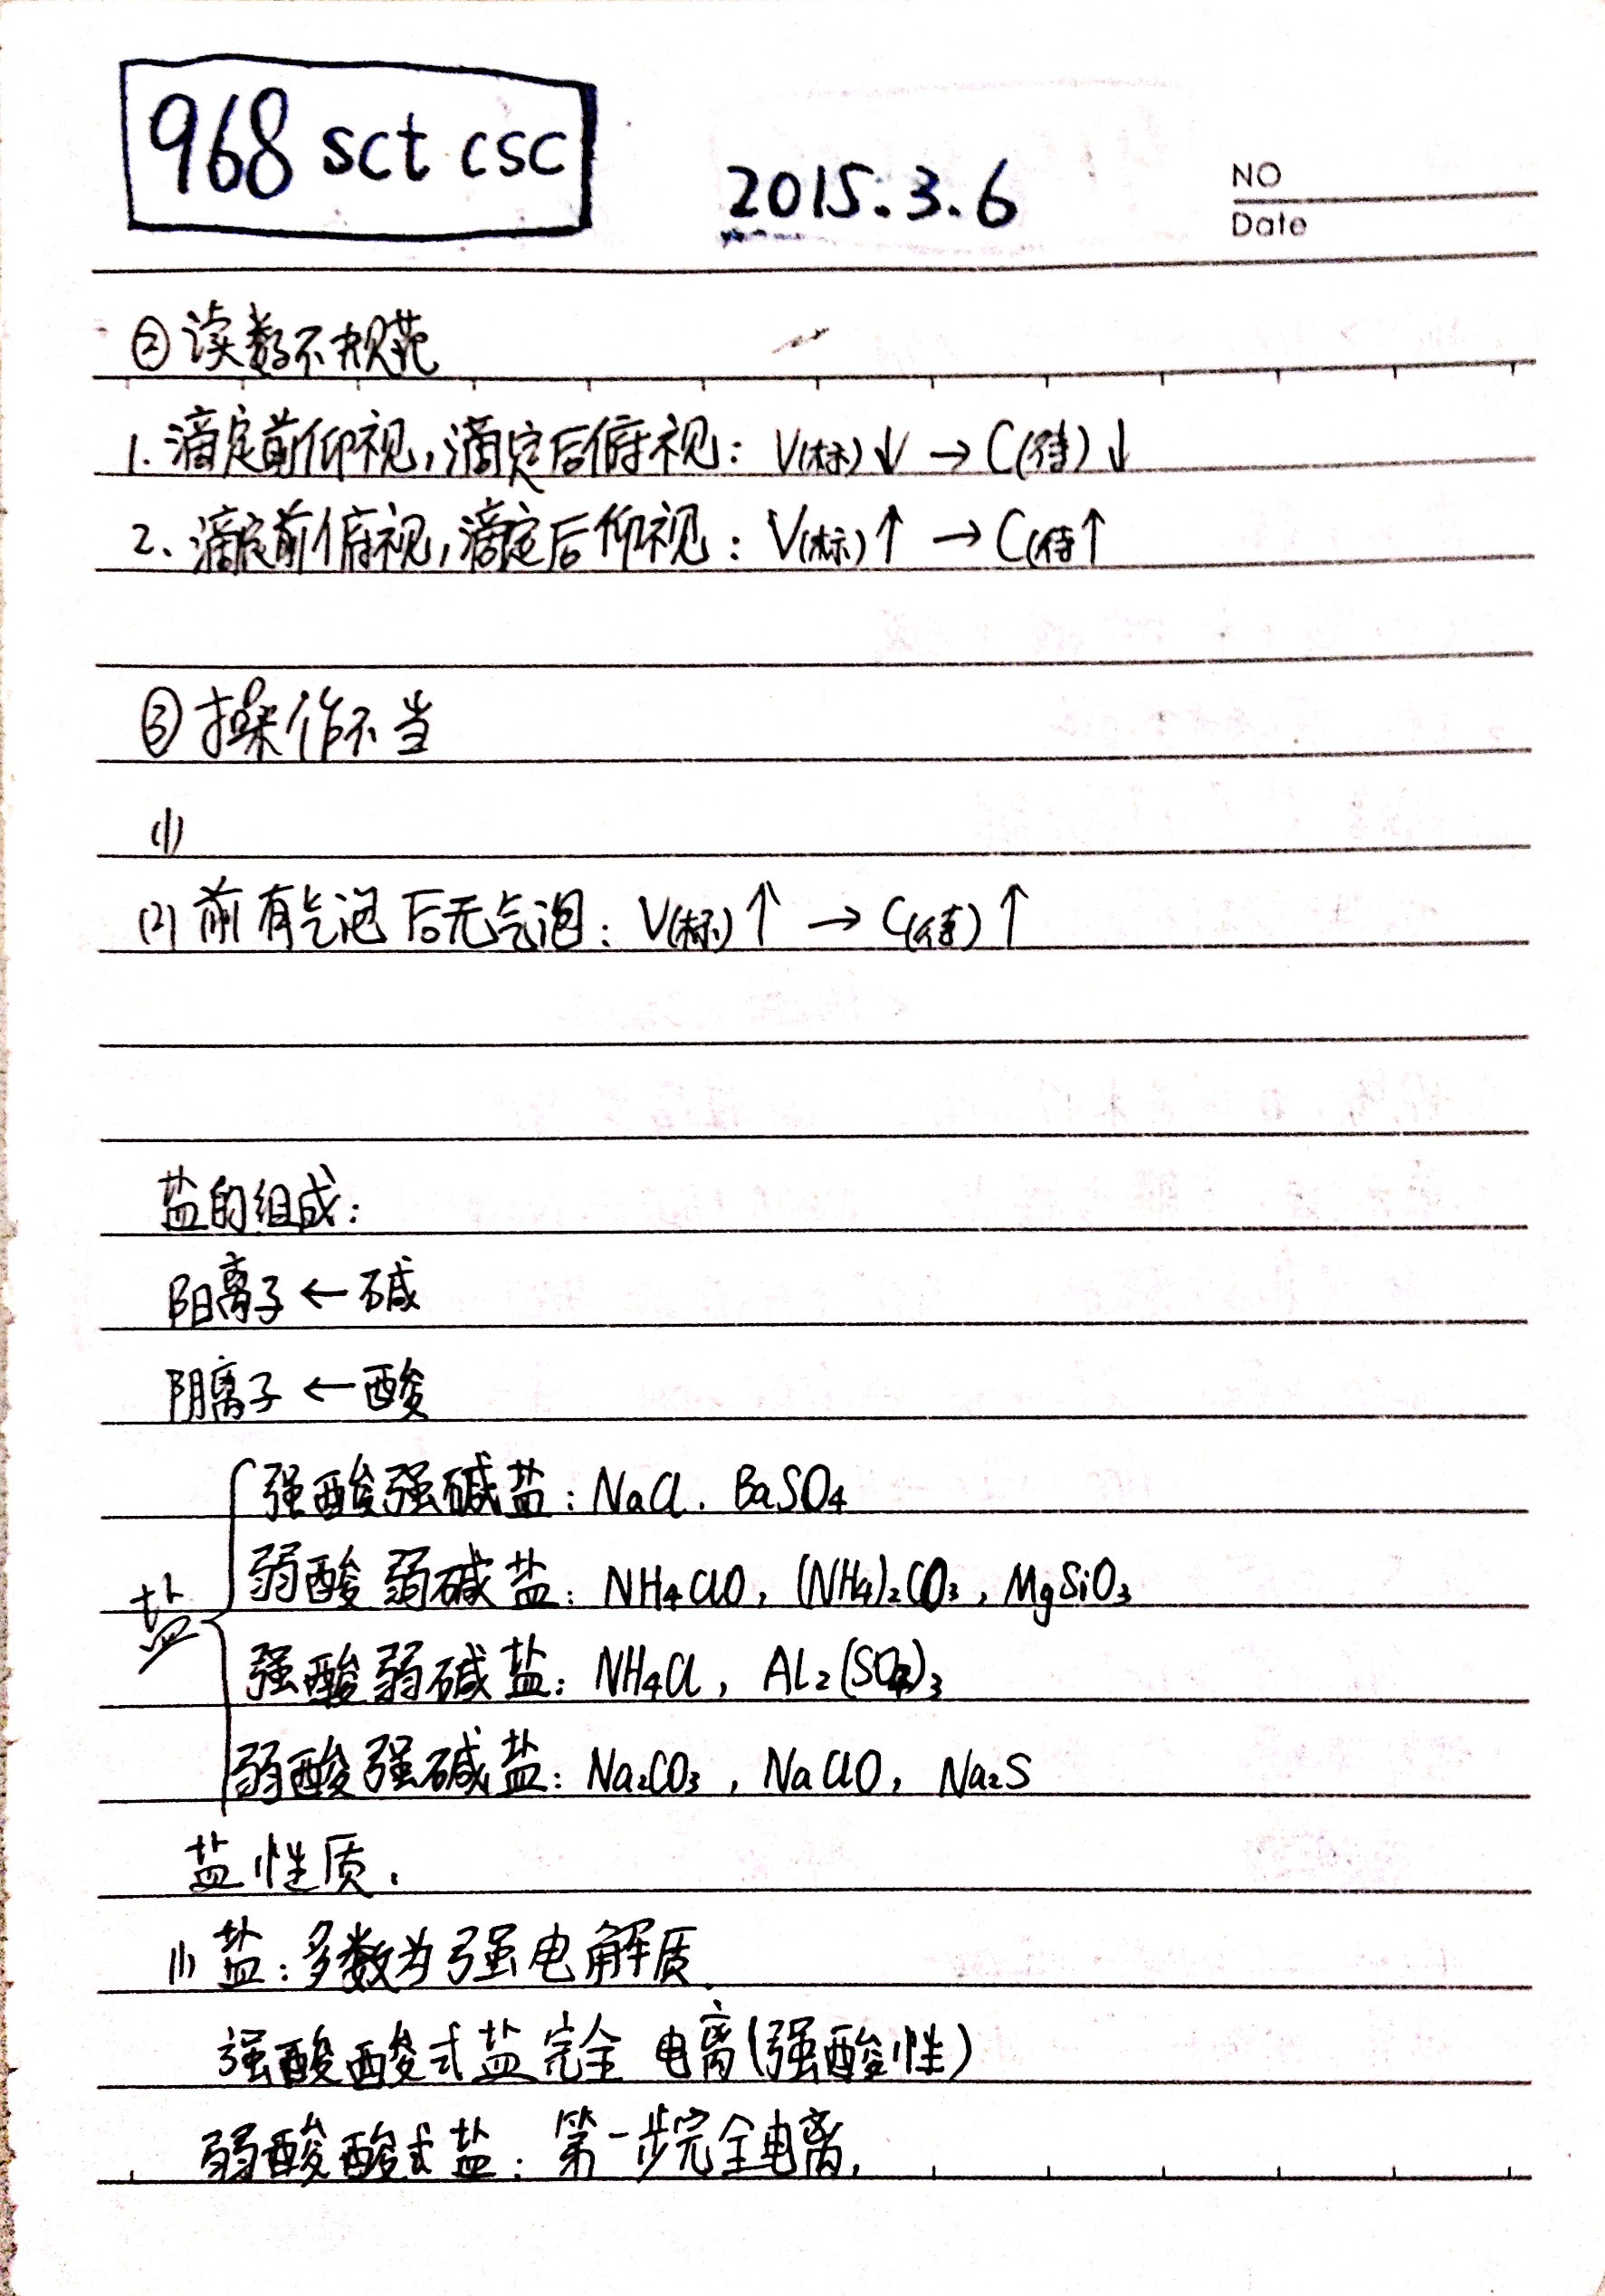 968 sct csc
2015.3.6
NO
Date
②读数不规范
1. 滴定前仰视,滴定后俯视: V(标)↓ → C(待)↓
2、滴定前俯视,滴定后仰视: V(标)↑ → C(待↑
③操作不当
(1)
(2) 前有气泡后无气泡: V(标)↑ → C(待)↑
盐的组成:
阳离子←碱
阴离子←酸
盐
强酸强碱盐: NaCl. BaSO₄
弱酸弱碱盐: NH₄ClO, (NH₄)₂CO₃, MgSiO₃
强酸弱碱盐: NH₄Cl, Al₂(SO₄)₃
弱酸强碱盐: Na₂CO₃, NaClO, Na₂S
盐性质.
(1) 盐:多数为强电解质.
强酸酸式盐完全电离(强酸性)
弱酸酸式盐:第一步完全电离.